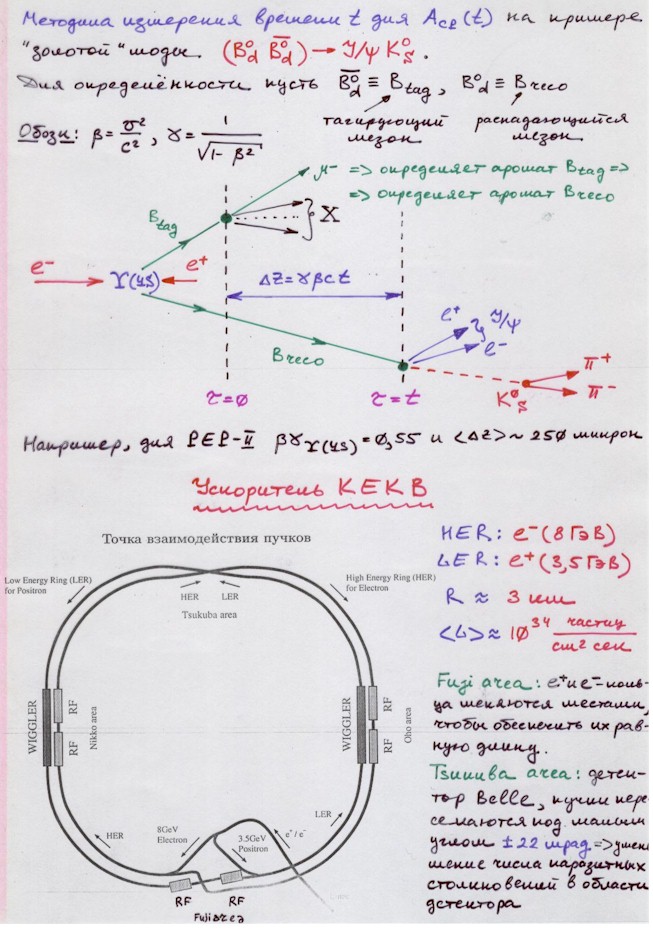 Методика измерения времени t для A_CP(t) на примере
"золотой" моды (B⁰_d B̄⁰_d) → J/ψ K⁰_S.
Для определённости пусть B̄⁰_d ≡ B_tag, B⁰_d ≡ B_reco
тагирующий мезон
распадающийся мезон
Обозн: β = v²/c², γ = 1/√(1-β²)
μ⁻ => определяет аромат B_tag =>
=> определяет аромат B_reco
B_tag
X
e⁻
Υ(4S)
e⁺
ΔZ = γβct
e⁺
J/ψ
e⁻
B_reco
π⁺
K⁰_S
π⁻
τ=0
τ=t
Например, для PEP-II βγ_Υ(4S) = 0,55 и <ΔZ> ~ 250 микрон
Ускоритель KEKB
Точка взаимодействия пучков
Low Energy Ring (LER)
for Positron
HER
LER
High Energy Ring (HER)
for Electron
Tsukuba area
WIGGLER
RF
RF
Nikko area
WIGGLER
RF
RF
Oho area
HER
8GeV
Electron
3.5GeV
Positron
e⁺/ e⁻
LER
RF
RF
Fuji area
HER: e⁻(8 ГэВ)
LER: e⁺(3,5 ГэВ)
R ≈ 3 км
<L> ≈ 10³⁴ частиц/см² сек
Fuji area: e⁺ и e⁻ - коль-
ца меняются местами,
чтобы обеспечить их рав-
ную длину.
Tsukuba area: детек-
тор Belle, пучки пере-
секаются под малым
углом ±22 мрад => умень
шение числа паразитных
столкновений в области
детектора